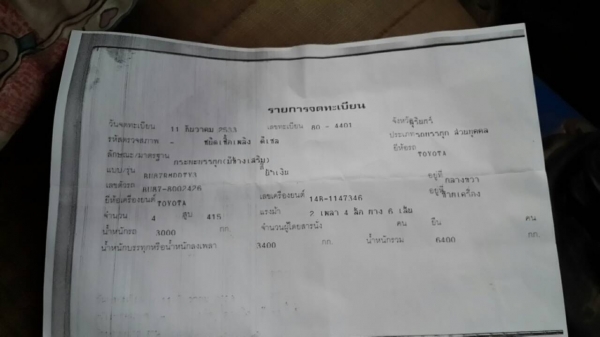 รายการจดทะเบียน
วันจดทะเบียน 11 ธันวาคม 2533 เลขทะเบียน 80 - 4401 จังหวัดสุรินทร์
รหัสตรวจสภาพ - ชนิดเชื้อเพลิง ดีเซล ประเภทรถบรรทุก ส่วนบุคคล
ลักษณะ/มาตรฐาน กระบะบรรทุก(มีข้างเสริม) ยี่ห้อรถ TOYOTA
แบบ/รุ่น สี
เลขตัวรถ อยู่ที่ กลางขวา
ยี่ห้อเครื่องยนต์ TOYOTA เลขเครื่องยนต์ 14B-1147346 อยู่ที่
จำนวน 4 สูบ 415 แรงม้า 2 เพลา 4 ล้อ ยาง 6 เส้น
น้ำหนักรถ 3000 กก. จำนวนผู้โดยสารนั่ง คน ยืน คน
น้ำหนักบรรทุกหรือน้ำหนักลงเพลา 3400 กก. น้ำหนักรวม 6400 กก.